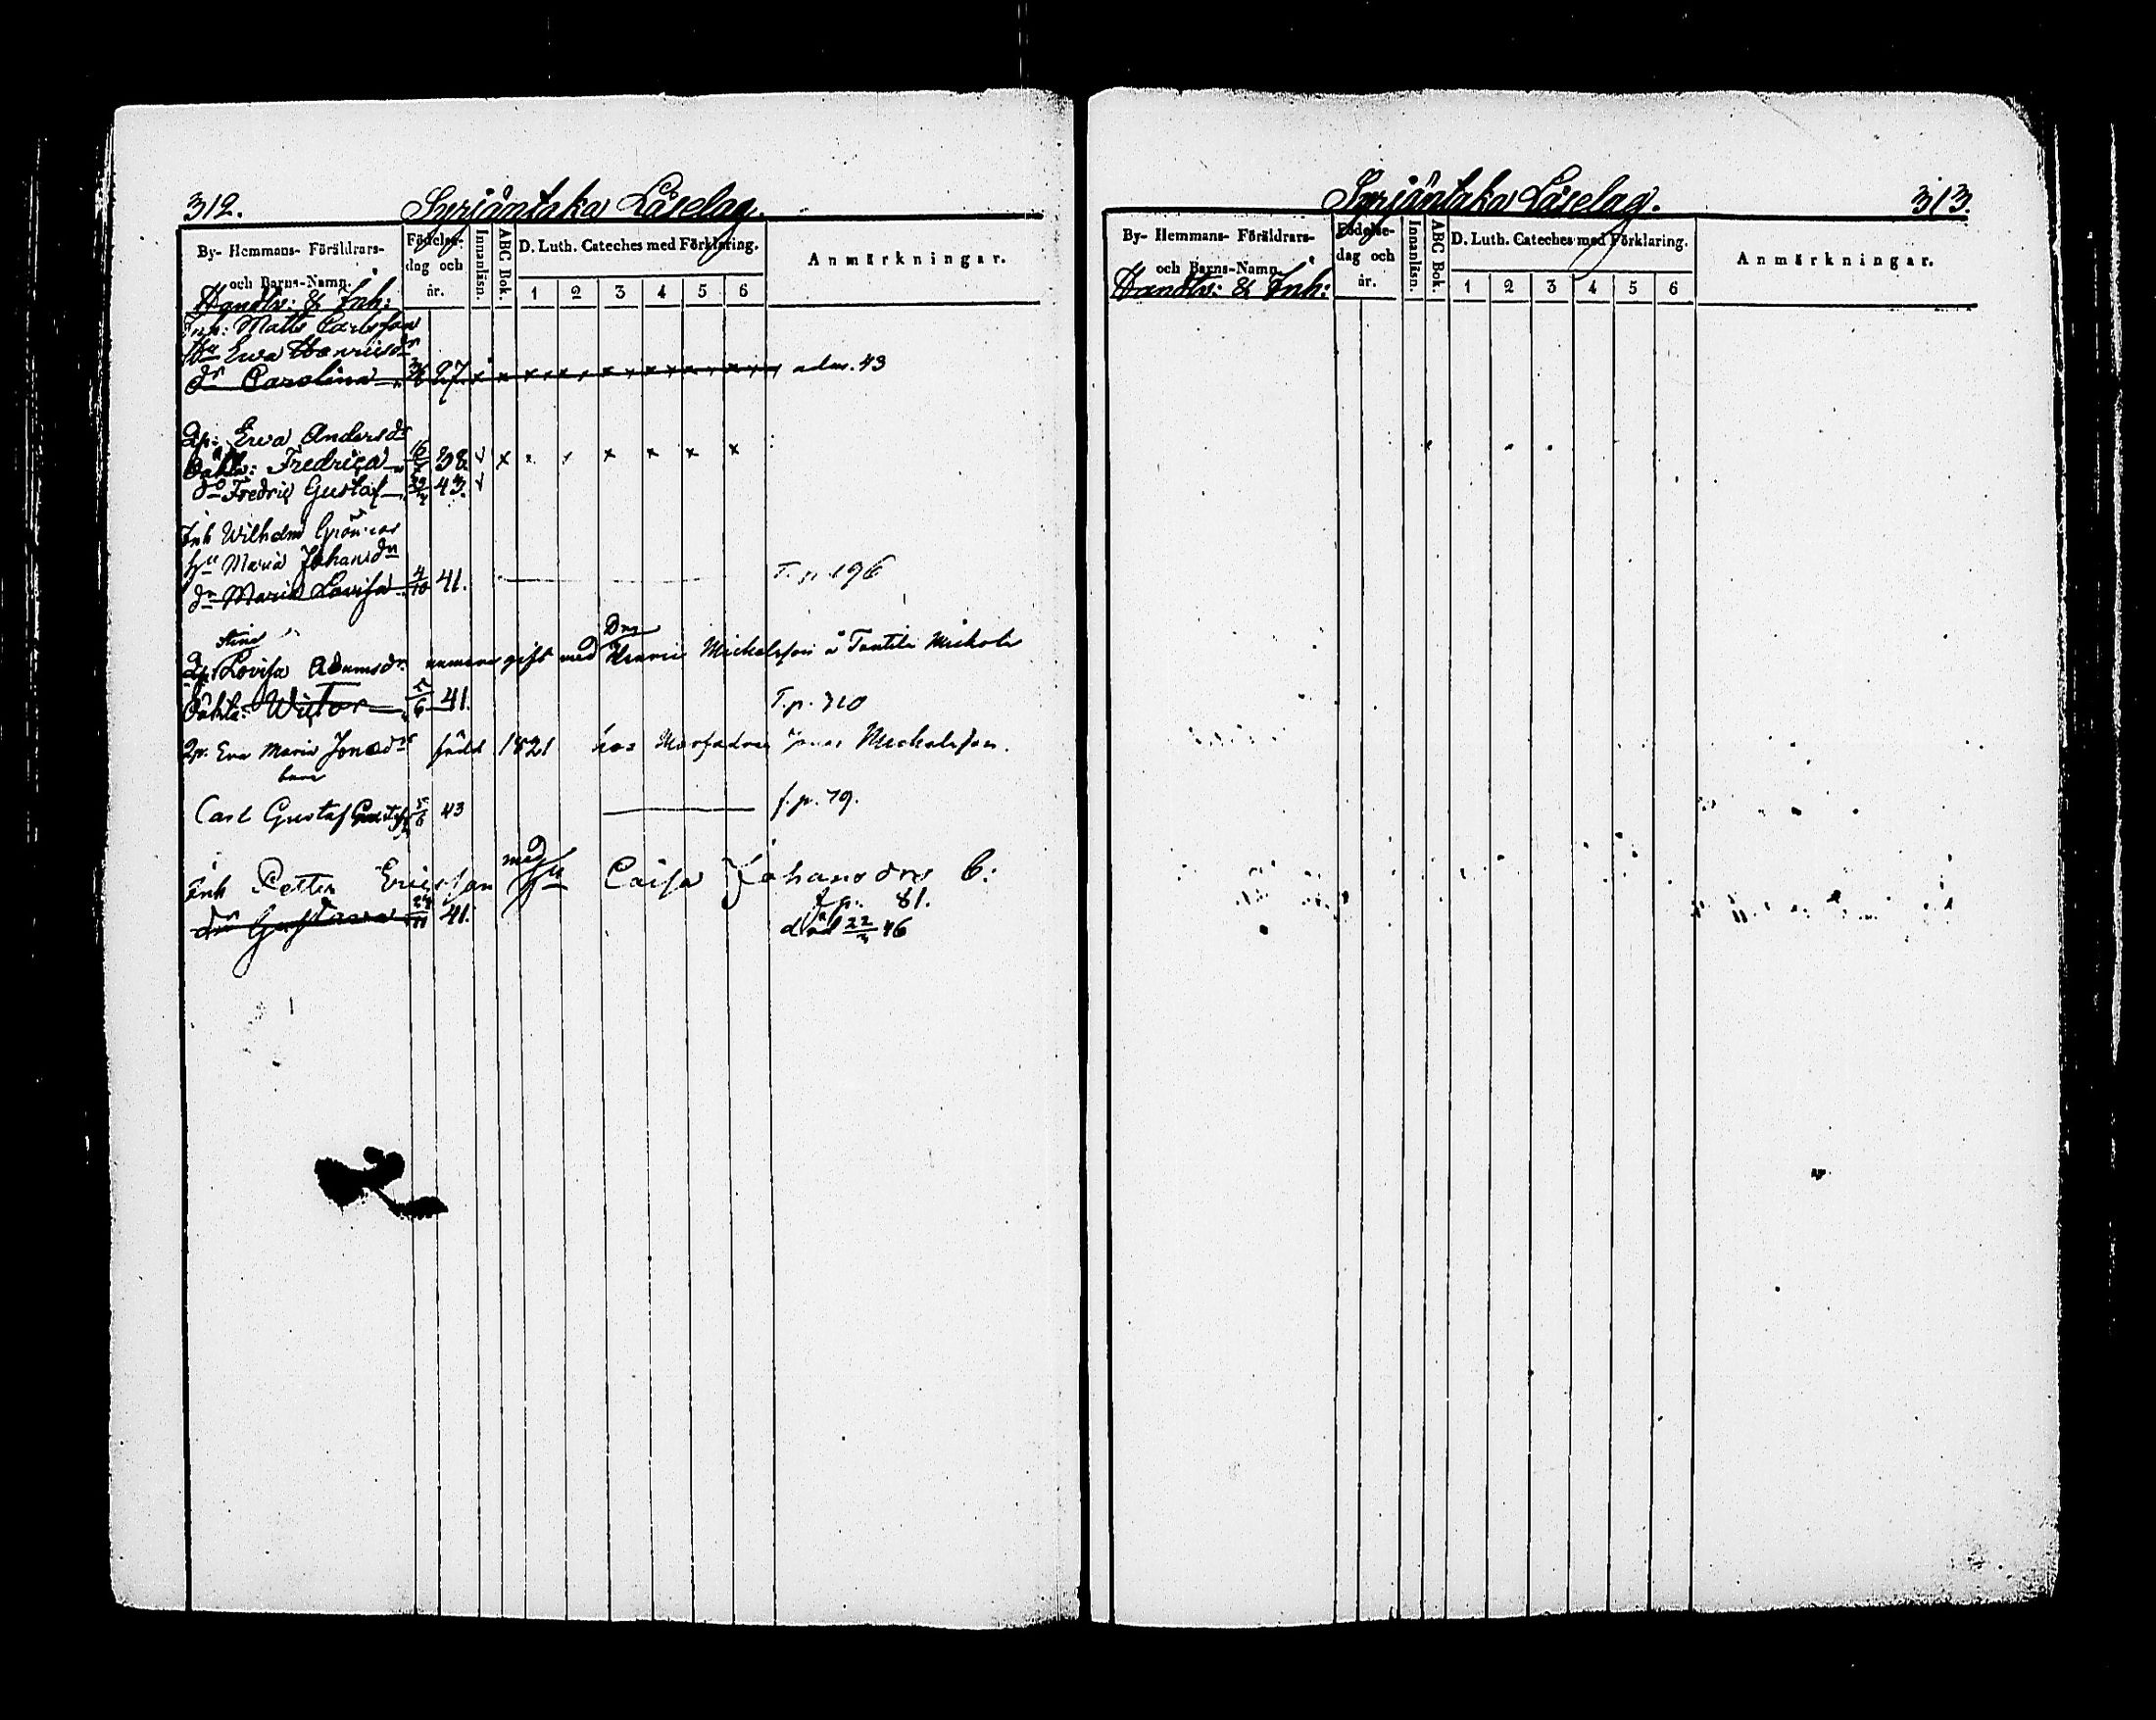 312.
Syrjäntaka Läselag.
By- Hemmans- Föräldrars- och Barns-Namn.
Födelse- dag och år.
Innanläsn.
ABC Bok.
D. Luth. Cateches med Förklaring.
1 2 3 4 5 6
Anmärkningar.
Handtv: & Inh:
Inh: Matts Carlsson
Hu Ewa Henricsdr
dr Carolina 27 x x x x x x x x adm. 43
Qp: Ewa Andersdr
Oäkta: Fredrica 38 x x x x x x
do Fredric Gustaf 43.
Inh Wilhelm Grönroos
Hu Maria Johansdr
dr Maria Lovisa 4/10 41. T. p. 196
Stina
Qp: Lovisa Adamsdr numera gift med Drg Henric Mickelsson å Tantila Mickola
Oäkta: Wictor 5/6 41. T. p. 310
Qp. Eva Maria Jonasdr född 1821 hos Morfadren Jonas Mickelsson.
barn
Carl Gustaf 5/6 43 f. p. 79.
Inh Petter Ericsson med Hu Caisa Johansdr C:
f. p. 81.
dr Gustava 41. död 22/3 46
Syrjäntaka Läselag.
313.
By- Hemmans- Föräldrars- och Barns-Namn.
Födelse- dag och år.
Innanläsn.
ABC Bok.
D. Luth. Cateches med Förklaring.
1 2 3 4 5 6
Anmärkningar.
Handtv: & Inh: